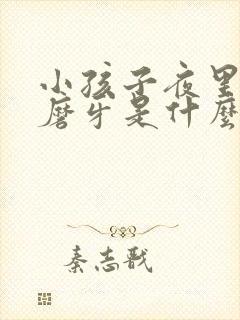 小孩子夜里
磨牙是什麼
秦志戬